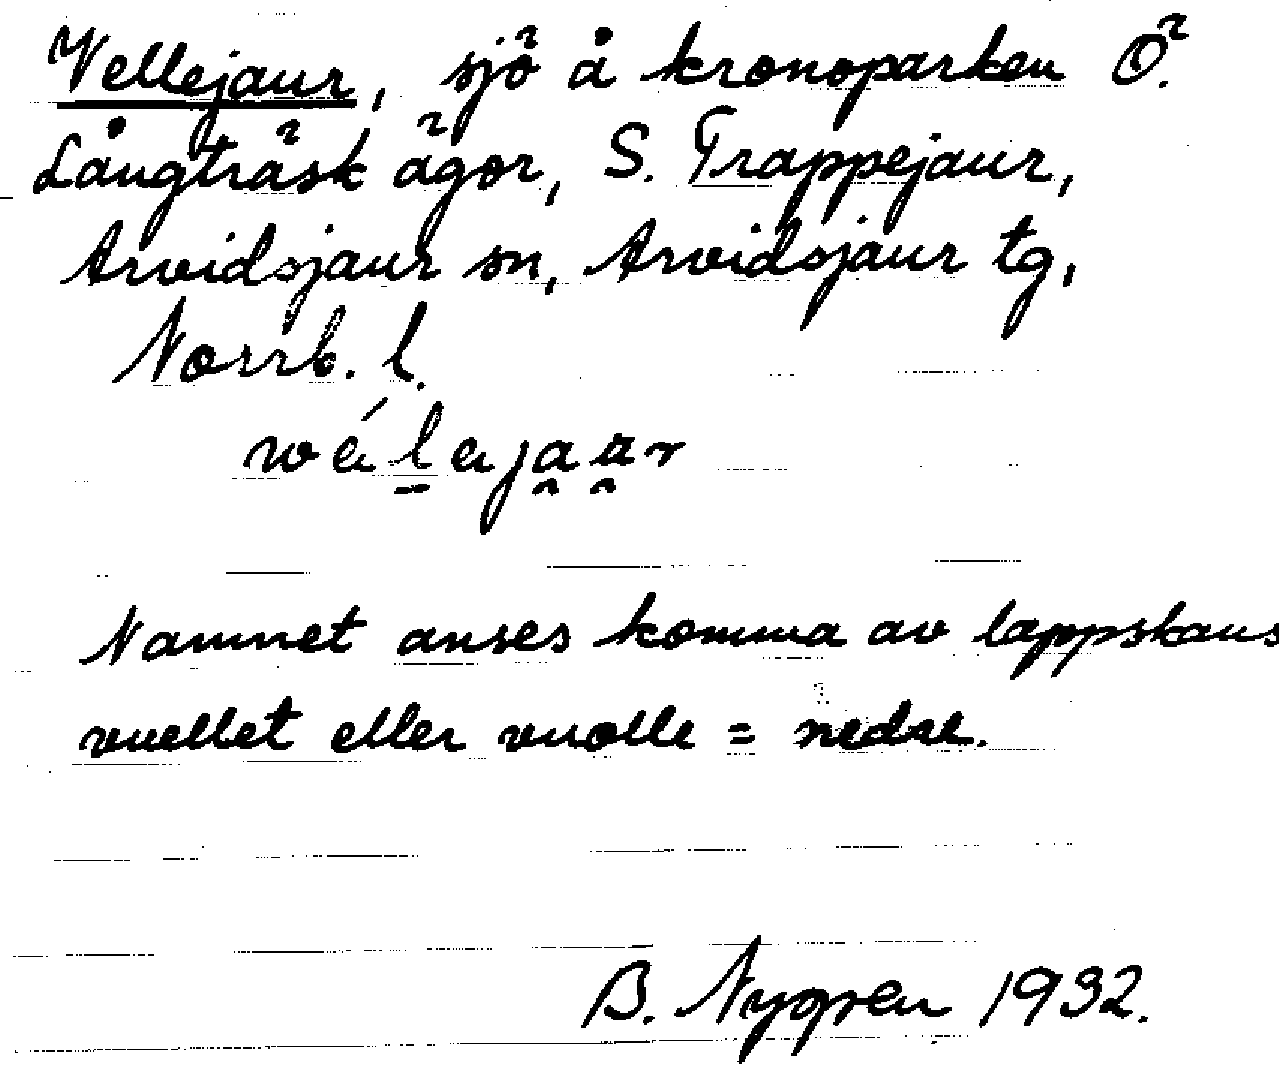 Vellejaur, sjö å kronoparken Ö.
Långträsk ägor, S. Trappejaur,
Arvidsjaur sn, Arvidsjaur tg,
Norrb. l.
Namnet anses komma av lappskans
vuellet eller vuolle = nedre.
B. Nygren 1932.